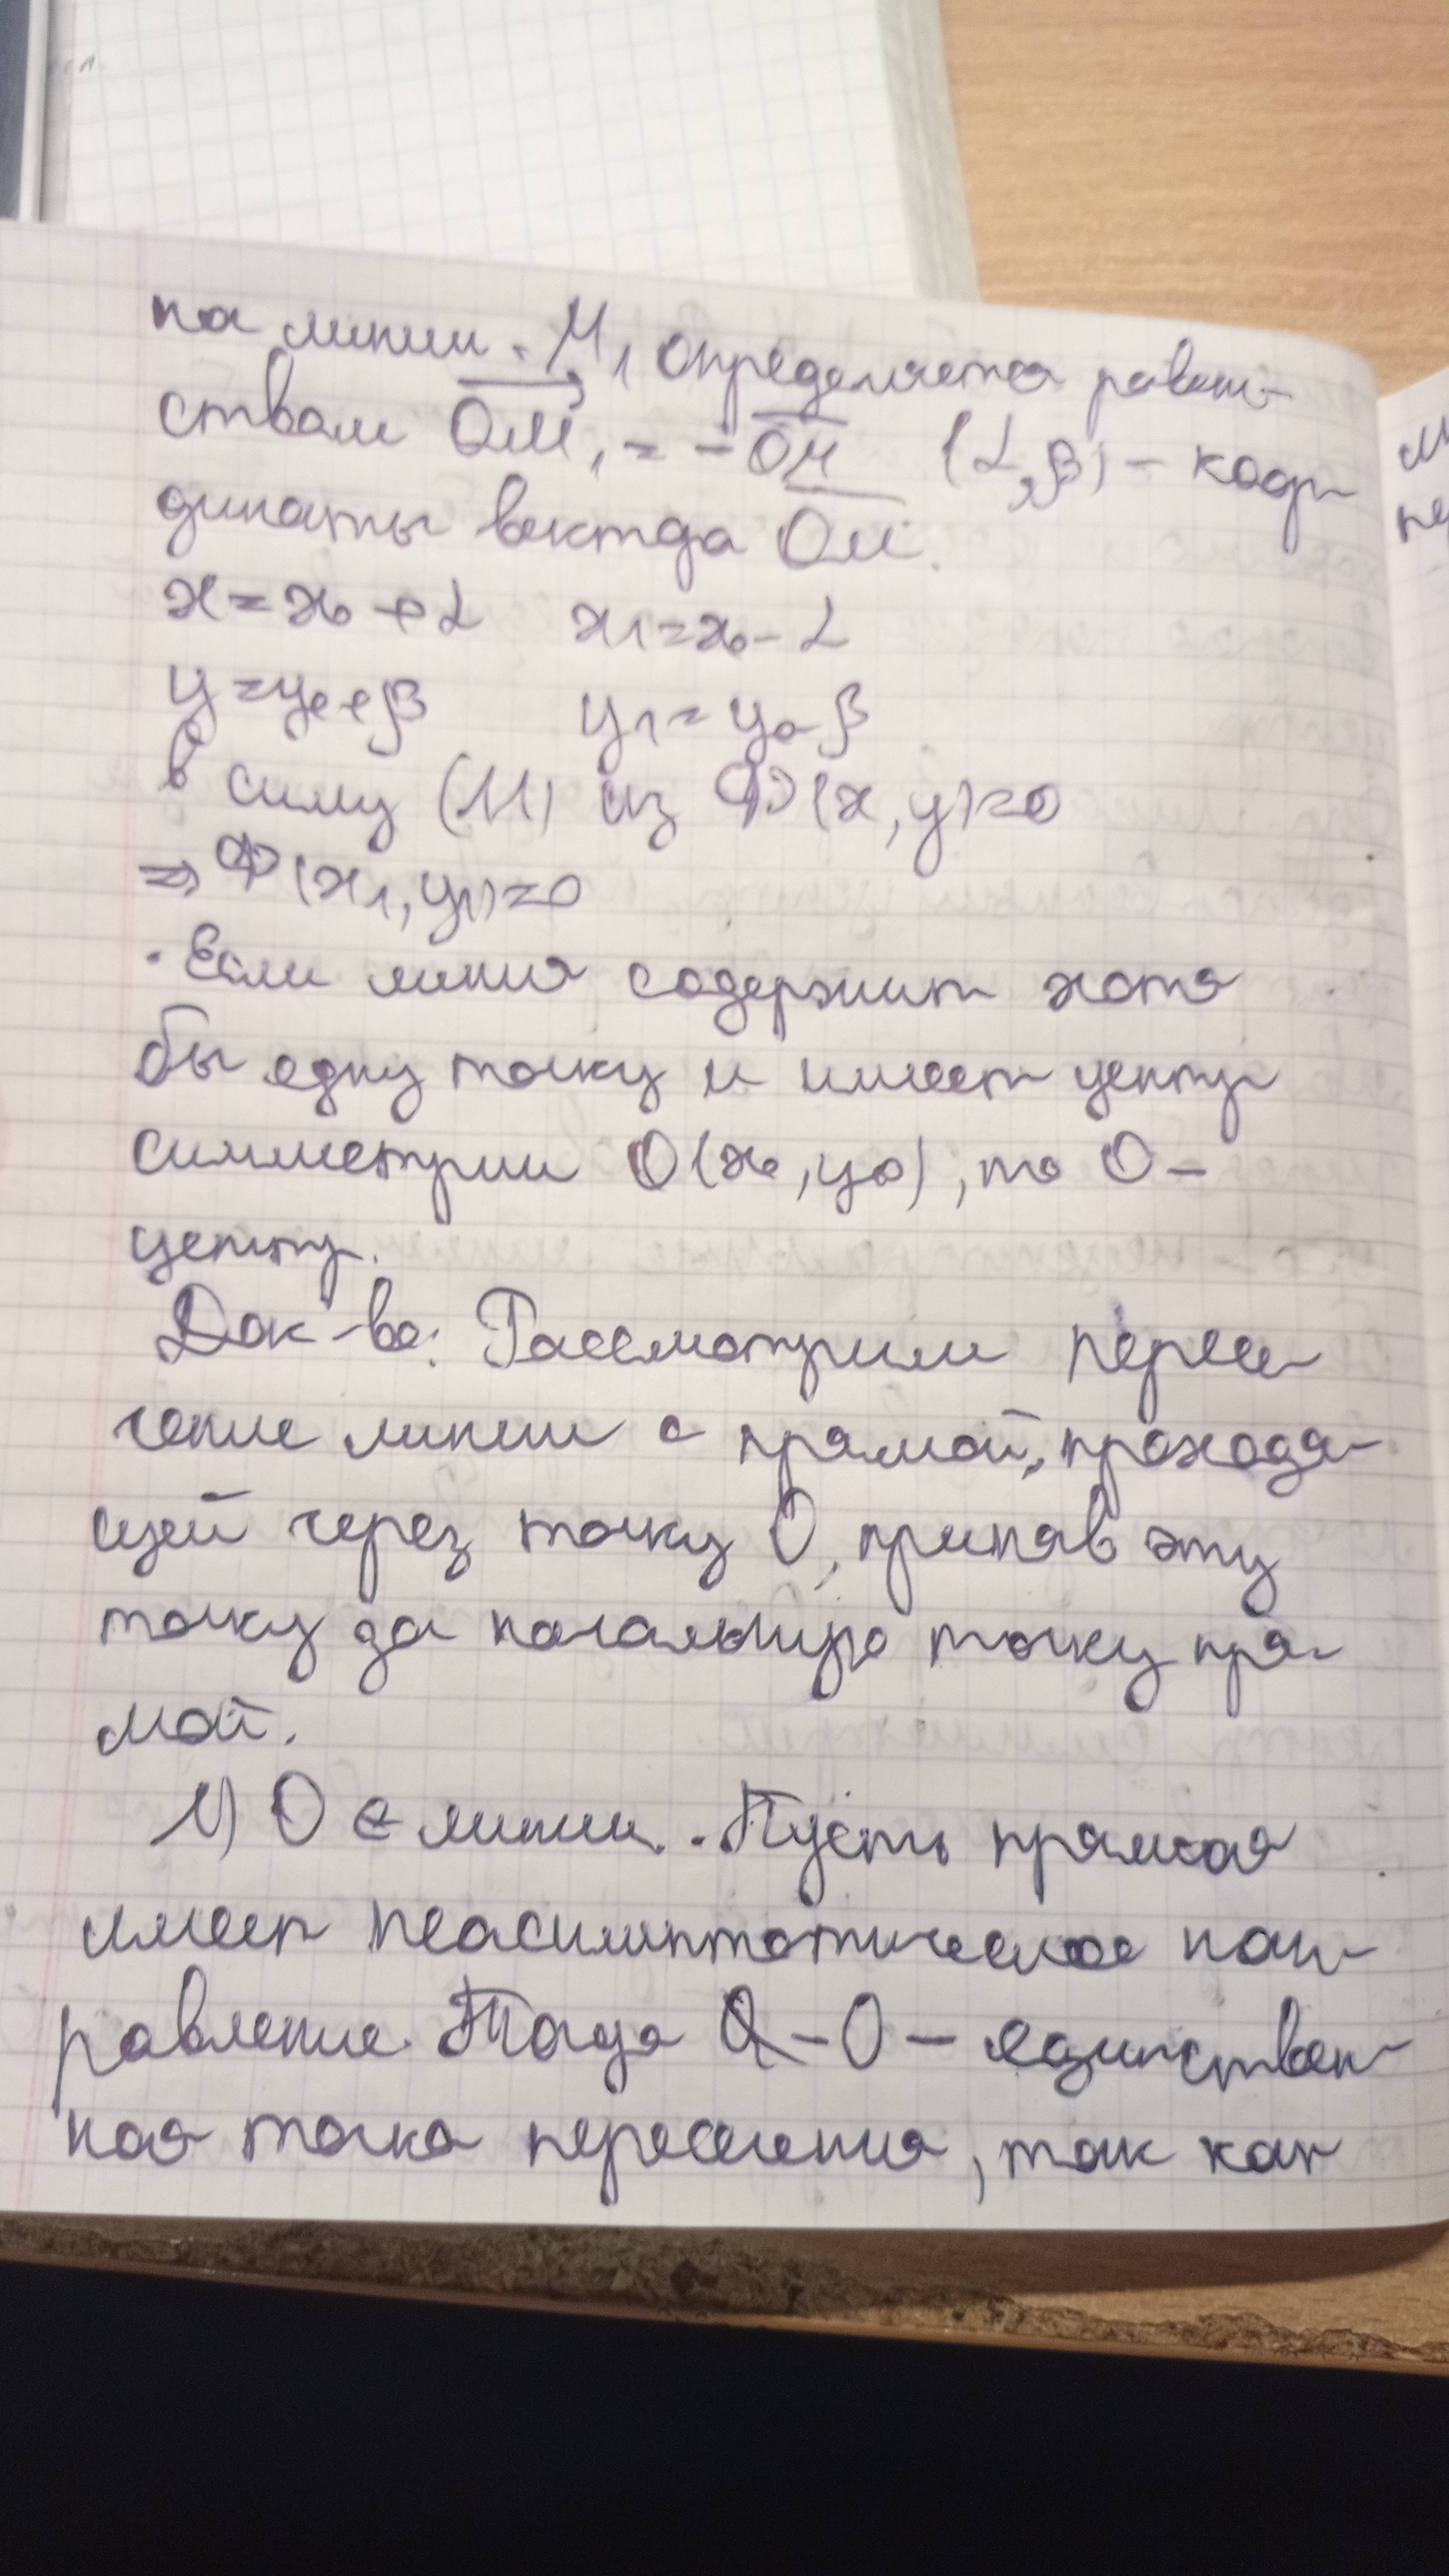 на линии. M₁ определяется равен-
ством OM₁ = -OM (α, β) - коор-
динаты вектора OM.
x = x₀ + α x₁ = x₀ - α
y = y₀ + β y₁ = y₀ - β
в силу (11) из Ф(x, y) = 0
⇒ Ф(x₁, y₁) = 0
· Если линия содержит хотя
бы одну точку и имеет центр
симметрии O(x₀, y₀), то O -
центр.
Док-во: Рассмотрим пересе-
чение линии с прямой, проходя-
щей через точку O, приняв эту
точку за начальную точку пря-
мой.
1) O ∈ линии. · Пусть прямая
имеет неасимптотическое нап-
равление. Тогда O - единствен-
ная точка пересечения, так как